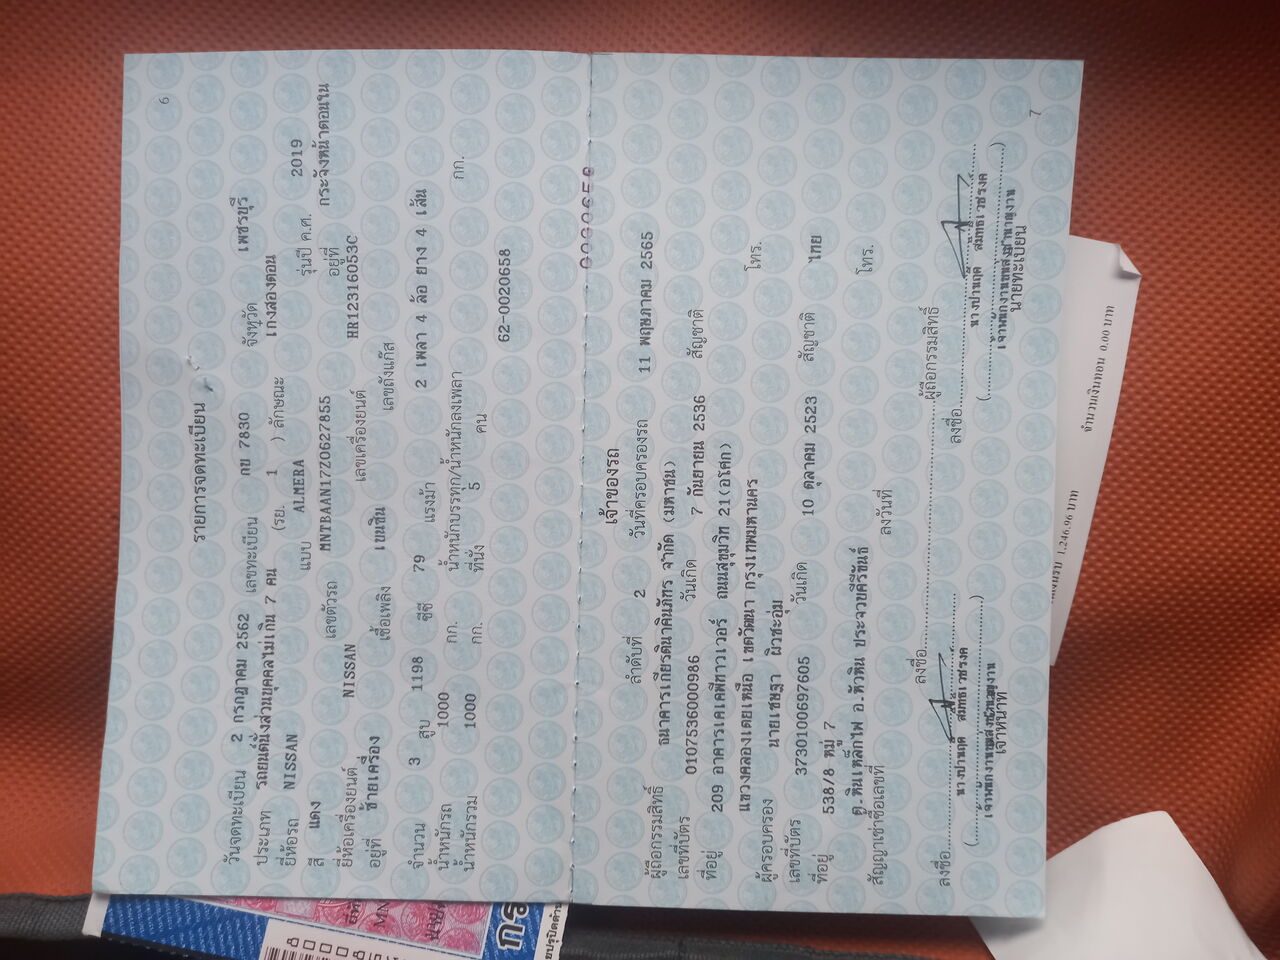 6
รายการจดทะเบียน
วันจดทะเบียน 2 กรกฎาคม 2562 เลขทะเบียน กข 7830 จังหวัด เพชรบุรี
ประเภท รถยนต์นั่งส่วนบุคคลไม่เกิน 7 คน (รย. 1 ) ลักษณะ เก๋งสองตอน
ยี่ห้อรถ NISSAN แบบ ALMERA รุ่นปี ค.ศ. 2019
สี แดง เลขตัวรถ MNTBAAN17Z0627855 อยู่ที่ กระจังหน้าตอนใน
ยี่ห้อเครื่องยนต์ NISSAN เลขเครื่องยนต์ HR12316053C
อยู่ที่ ซ้ายเครื่อง เชื้อเพลิง เบนซิน เลขถังแก๊ส
จำนวน 3 สูบ 1198 ซีซี 79 แรงม้า 2 เพลา 4 ล้อ ยาง 4 เส้น
น้ำหนักรถ 1000 กก. น้ำหนักบรรทุก/น้ำหนักลงเพลา กก.
น้ำหนักรวม 1000 กก. ที่นั่ง 5 คน
62-0020658
เจ้าของรถ
ลำดับที่ 2 วันที่ครอบครองรถ 11 พฤษภาคม 2565
ผู้ถือกรรมสิทธิ์ ธนาคารเกียรตินาคินภัทร จำกัด (มหาชน)
เลขที่บัตร 0107536000986 วันเกิด 7 กันยายน 2536 สัญชาติ
ที่อยู่ 209 อาคารเคเคพีทาวเวอร์ ถนนสุขุมวิท 21(อโศก)
แขวงคลองเตยเหนือ เขตวัฒนา กรุงเทพมหานคร โทร.
ผู้ครอบครอง นายเชษฐา ผิวชะอุ่ม
เลขที่บัตร 3730100697605 วันเกิด 10 ตุลาคม 2523 สัญชาติ ไทย
ที่อยู่ 538/8 หมู่ 7
ต.หินเหล็กไฟ อ.หัวหิน ประจวบคีรีขันธ์ โทร.
สัญญาเช่าซื้อเลขที่ ลงวันที่
ลงชื่อ ผู้ถือกรรมสิทธิ์
ลงชื่อ ลงชื่อ
เจ้าหน้าที่ นายทะเบียน
7
1,246.96 บาท จำนวนเงินทอน 0.00 บาท